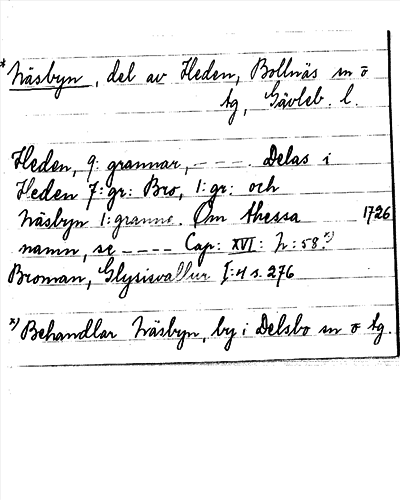 * Näsbyn, del av Heden, Bollnäs sn o
tg, Gävleb. l.
Heden, 9: grannar, - - - . Delas i
Heden 7: gr: Bro, 1: gr: och
Näsbyn 1: granne. Om thessa 1726
namn, se - - - - Cap: XVI: N: 58. x)
Broman, Glysisvallur I: 4 s. 276
x) Behandlar Näsbyn, by i Delsbo sn o tg.